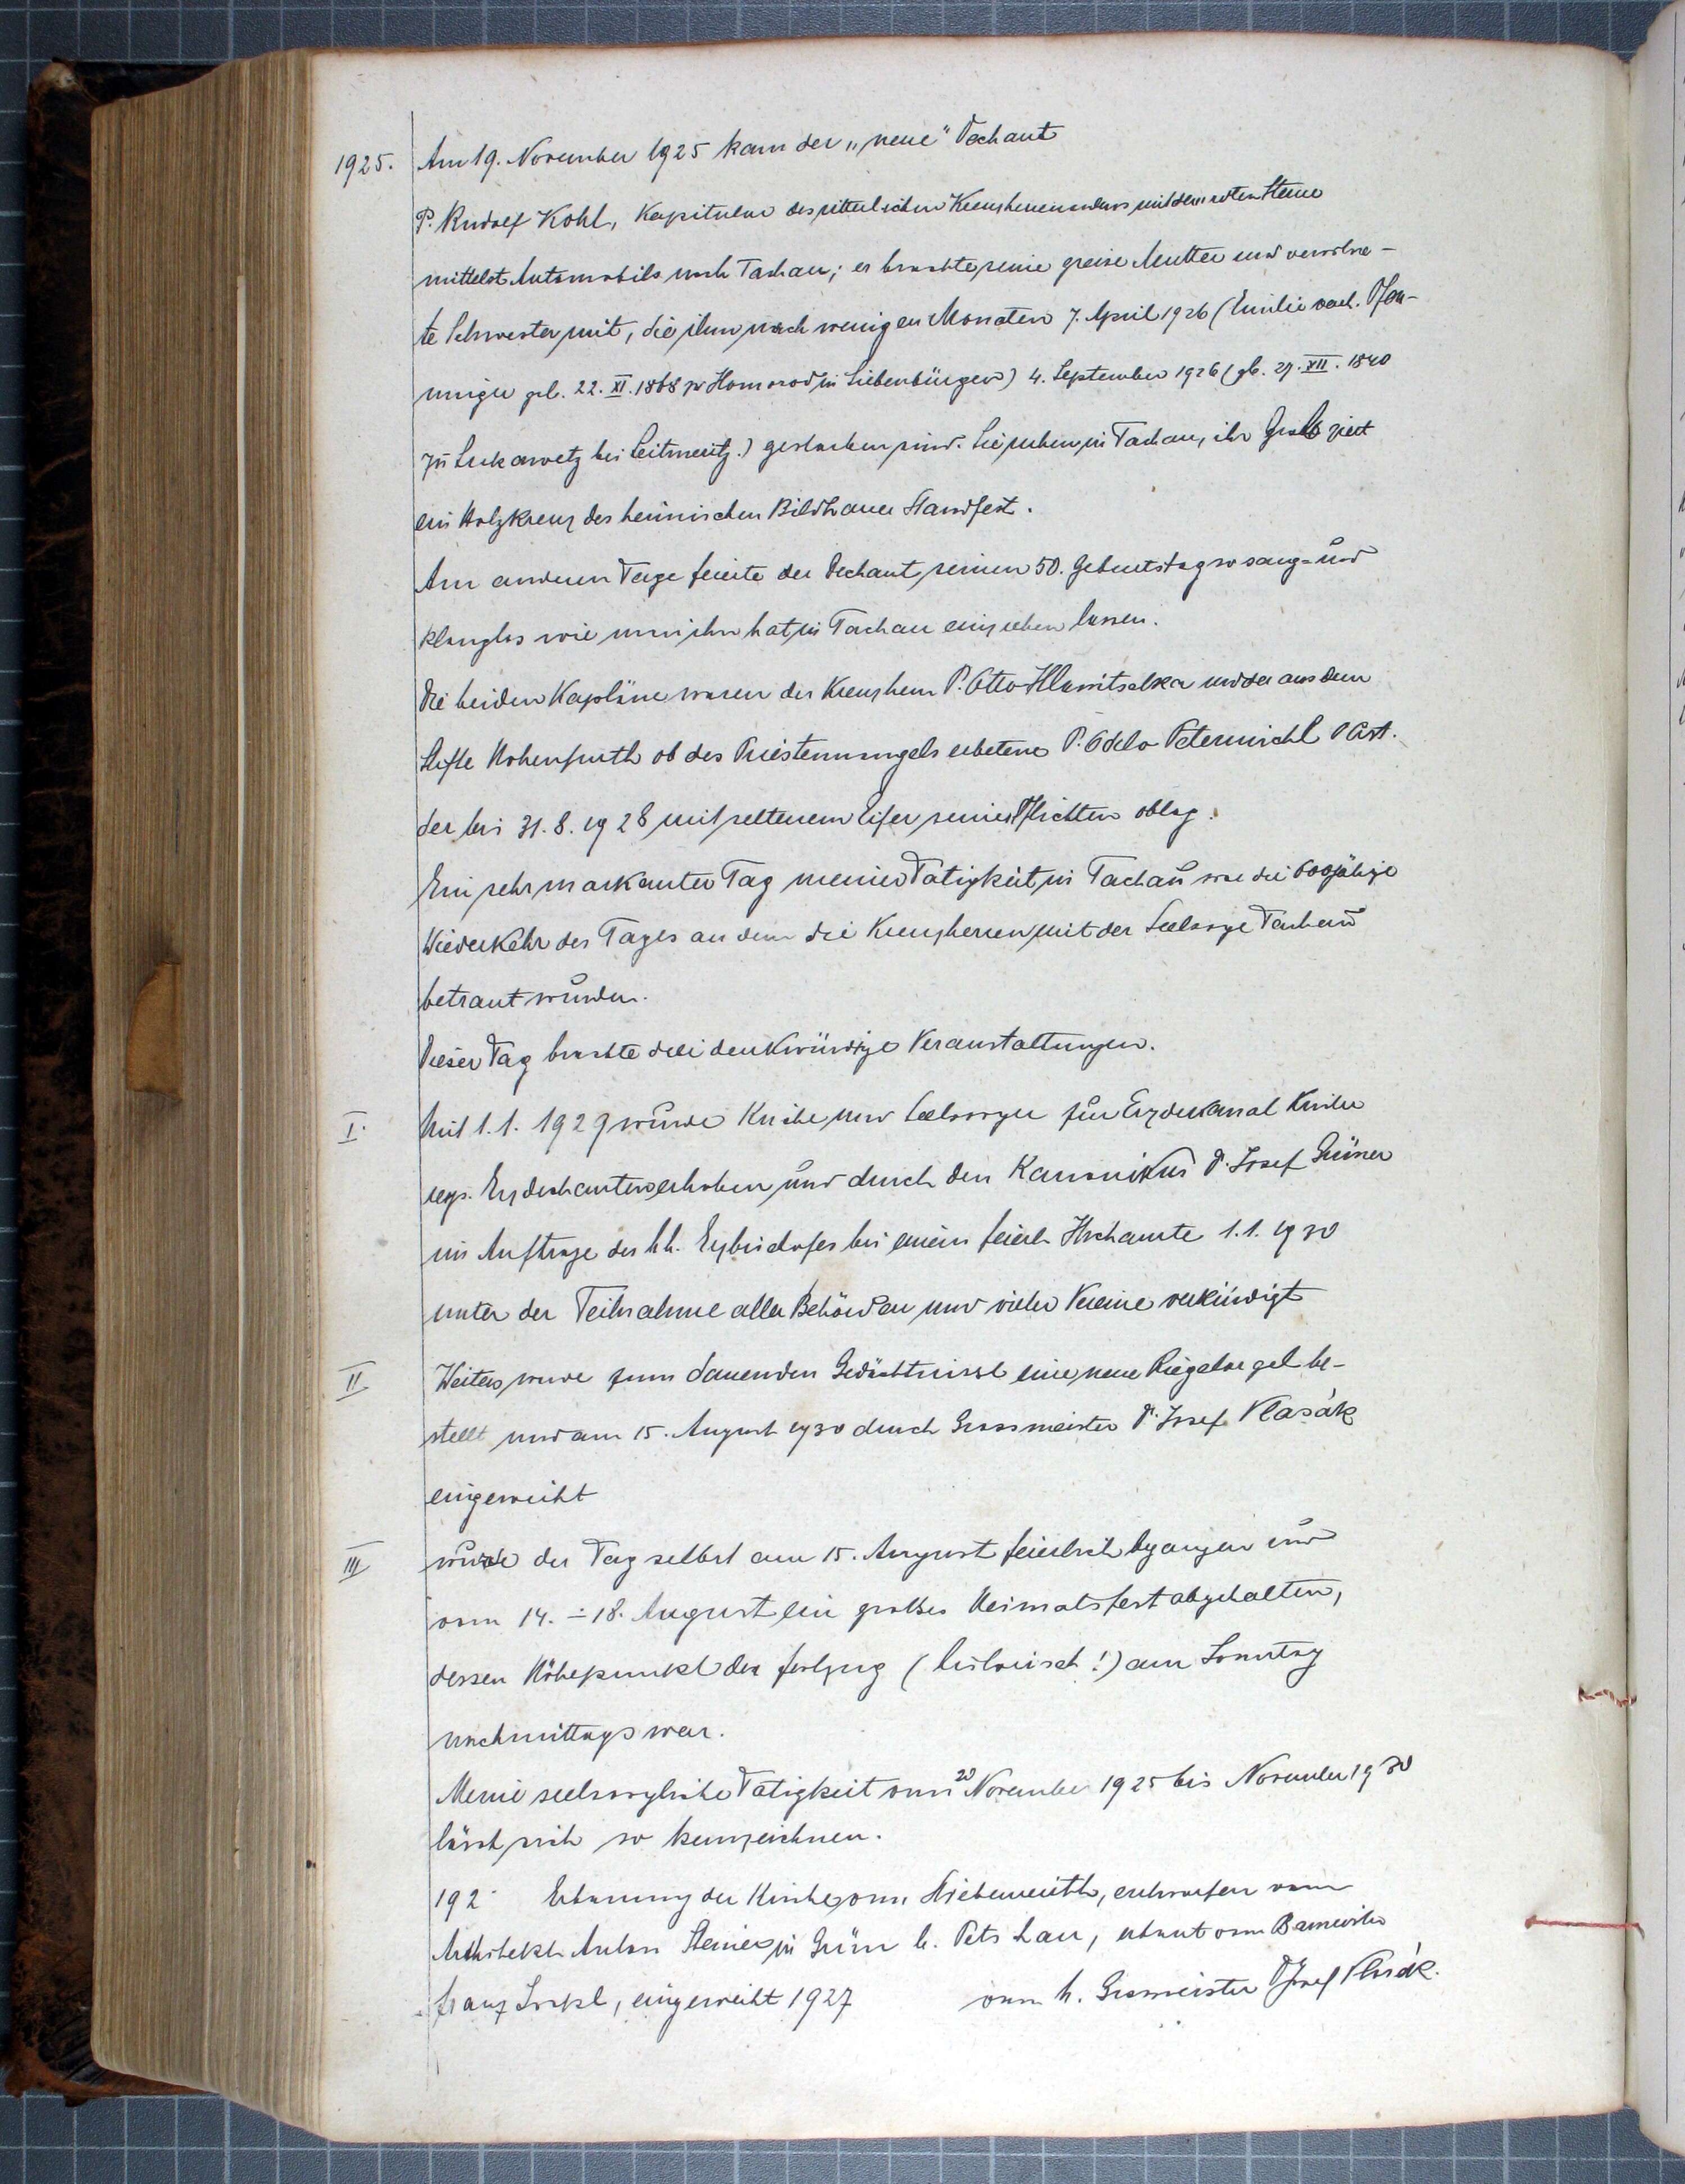 1925. Am 19. November 1925 kam der „neue" Dechant
P. Rudolf Kohl, Kapitular des ritterlichen Kreuzherrenordens mit dem roten Sterne
mittelst Automobils nach Tachau; er brachte seine greise Mutter und verwitwe-
te Schwester mit, die ihm nach wenigen Monaten 7. April 1926 (Emilie verh.
geb. 22. XI. 1868 zu Homorod in Siebenbürgen) 4. September 1926 (gb. 27. XII. 1840
zu Lukawetz bei Leitmeritz.) gestorben sind. Sie ruhen in Tachau, ihr Grab ziert
ein Holzkreuz des heimischen Bildhauer Standfest.
Am anderen Tage feierte der Dechant seinen 50. Geburtstag so sang- und
klanglos wie man ihn hat in Tachau einziehen lassen.
Die beiden Kapläne waren der Kreuzherr P. Otto Hlawitschka und der aus dem
Stifte Hohenfurth ob des Priestermangels erbetene P. Odilo Petermichl O Cist.
der bis 31. 8. 1928 mit seltenem Eifer seinen Pflichten oblag.
Ein sehr markanter Tag meiner Tätigkeit in Tachau war die 600jährige
Wiederkehr des Tages an dem die Kreuzherren mit der Seelsorge Tachau
betraut wurden.
Dieser Tag brachte drei denkwürdige Veranstaltungen.
I. Mit 1. 1. 1929 wurde Kirche und Seelsorger zur Erzdekanal Kirche
resp. Erzdechanten erhoben und durch den Kanonikus P. Josef Grüner
im Auftrage des hh. Erzbischofes bei einem feierl. Hochamte 1. 1. 1930
unter der Teilnahme aller Behörden und vieler Vereine verkündigt
II Weiters wurde zum dauernden Gedächtnisse eine neue Riegelorgel be-
stellt und am 15. August 1930 durch Grossmeister P. Josef Vlasák
eingeweiht
III wurde der Tag selbst am 15. August feierlich begangen und
vom 14. ÷ 18. August ein großes Heimatsfest abgehalten,
dessen Höhepunkt der Festzug (historisch!) am Sonntag
nachmittags war.
Meine seelsorgliche Tätigkeit vom 20 November 1925 bis November 1930
lässt sich so kennzeichnen.
192 Erbauung der Kirche von, entworfen vom
Architekt Anton Steiner in Grün b. Petschau, erbaut vom Baumeister
Franz, eingeweiht 1927 vom h. Grosmeister Josef Vlasák.